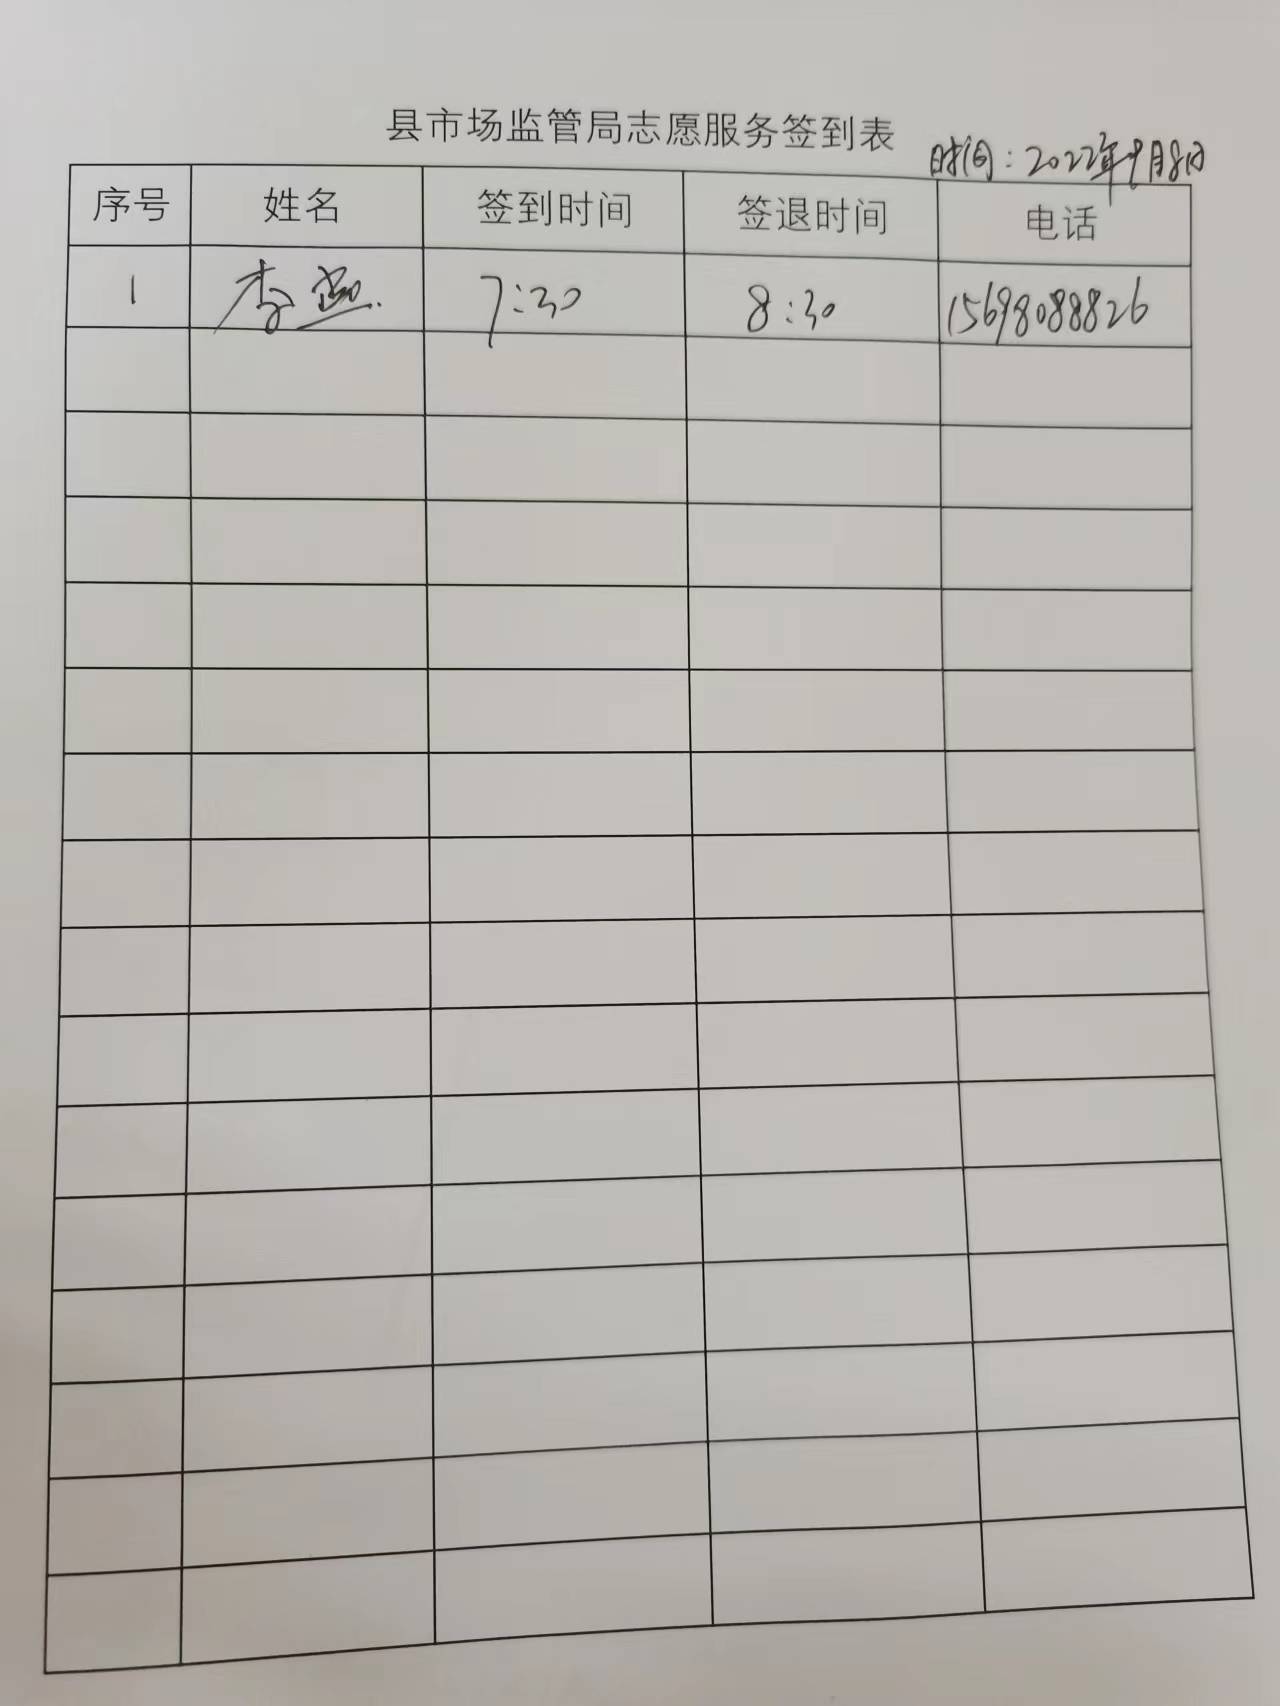 县市场监管局志愿服务签到表
时间：2022年9月8日
序号 姓名 签到时间 签退时间 电话
1 李 7:30 8:30 15698088826